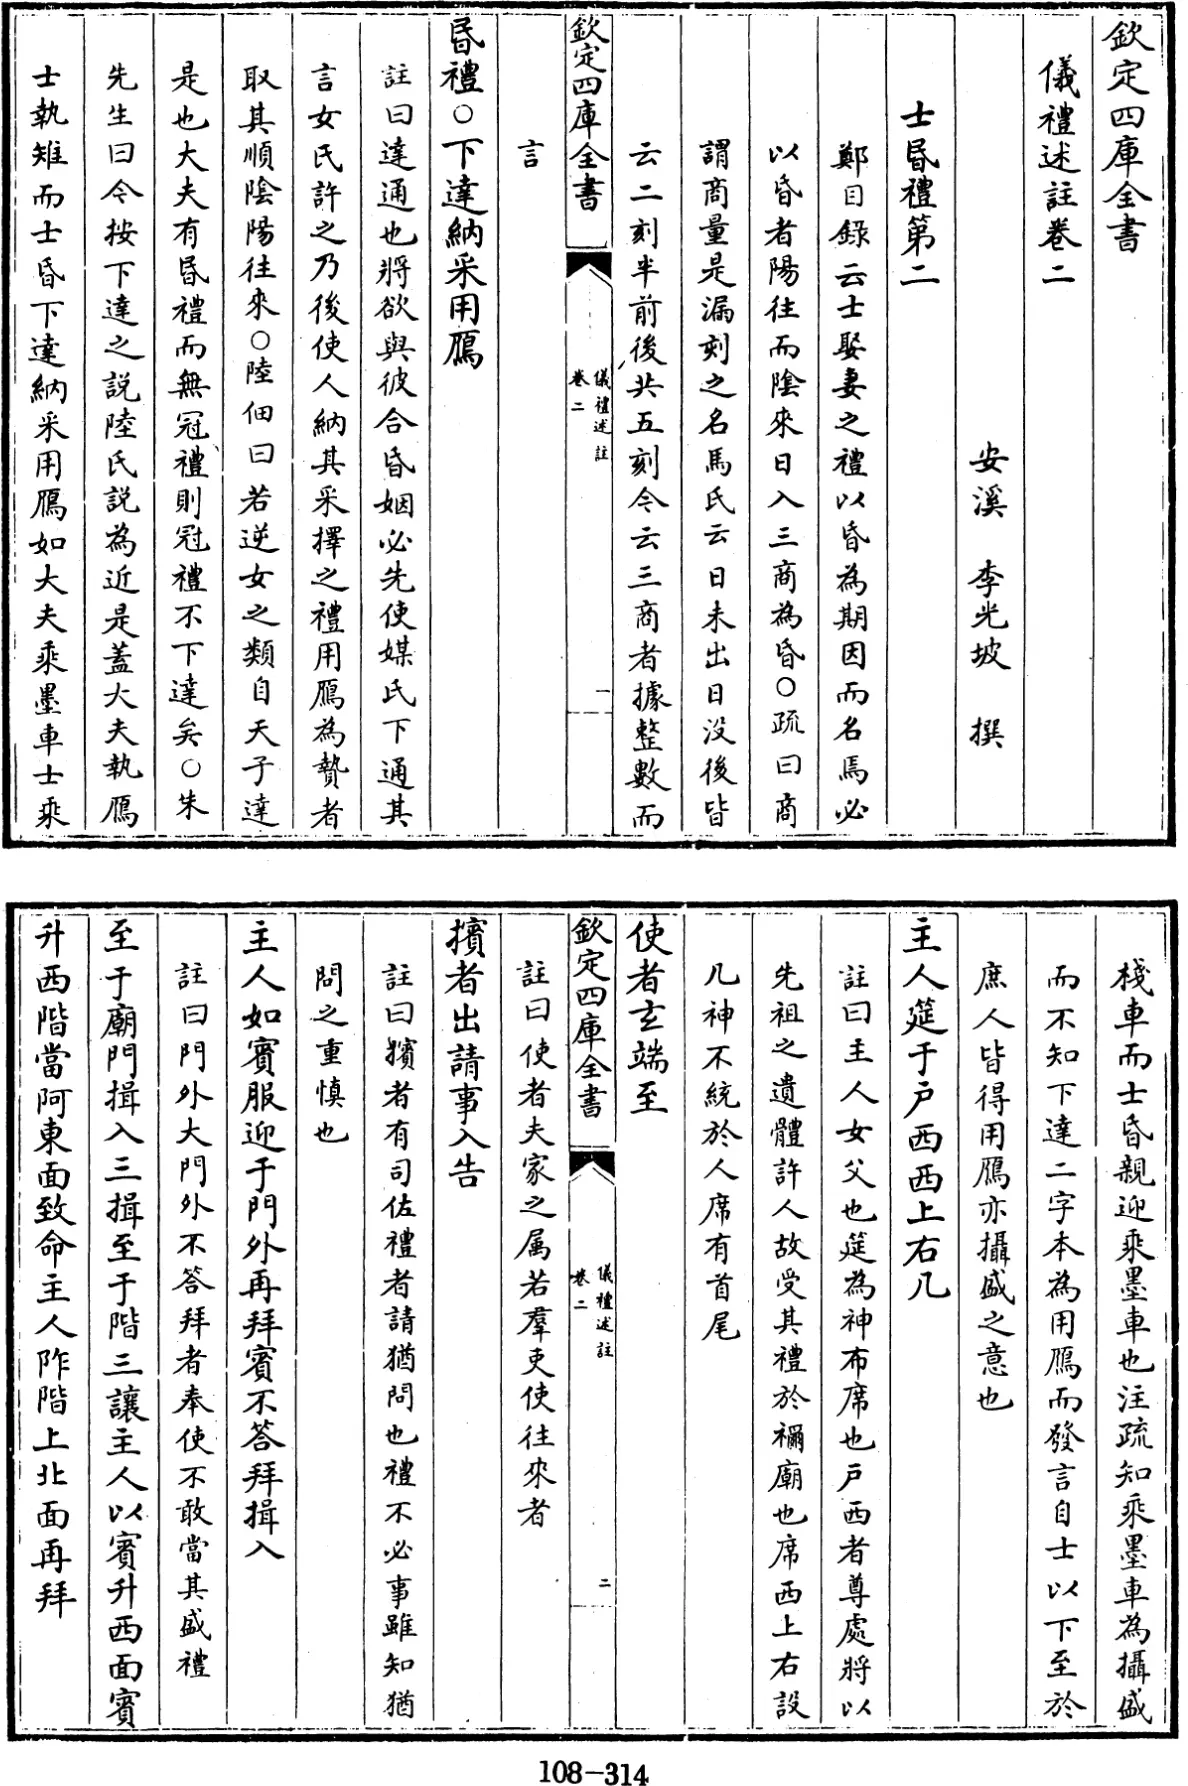 欽定四庫全書
儀禮述註卷二
安溪 李光坡 撰
士昏禮第二
鄭目錄云士娶妻之禮以昏為期因而名焉必
以昏者陽往而陰來日入三商為昏○疏曰商
謂商量是漏刻之名馬氏云日未出日沒後皆
云二刻半前後共五刻今云三商者據整數而
欽定四庫全書
儀禮述註
卷二
一
言
昏禮○下達納采用鴈
註曰達通也將欲與彼合昏姻必先使媒氏下通其
言女氏許之乃後使人納其采擇之禮用鴈為贄者
取其順陰陽往來○陸佃曰若逆女之類自天子達
是也大夫有昏禮而無冠禮則冠禮不下達矣○朱
先生曰今按下達之説陸氏説為近是蓋大夫執鴈
士執雉而士昏下達納采用鴈如大夫乘墨車士乘
棧車而士昏親迎乘墨車也注疏知乘墨車為攝盛
而不知下達二字本為用鴈而發言自士以下至於
庶人皆得用鴈亦攝盛之意也
主人筵于户西西上右几
註曰主人女父也筵為神布席也戸西者尊處將以
先祖之遺體許人故受其禮於禰廟也席西上右設
几神不統於人席有首尾
使者玄端至
欽定四庫全書
儀禮述註
卷二
二
註曰使者夫家之属若羣吏使往來者
擯者出請事入告
註曰擯者有司佐禮者請猶問也禮不必事雖知猶
問之重慎也
主人如賓服迎于門外再拜賓不答拜揖入
註曰門外大門外不答拜者奉使不敢當其盛禮
至于廟門揖入三揖至于階三讓主人以賓升西面賓
升西階當阿東面致命主人阼階上北面再拜
108-314